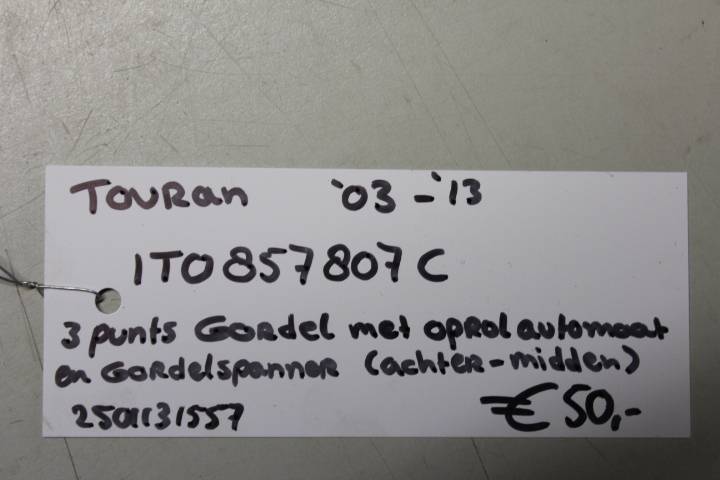 Touran '03 - '13
1T0857807C
3 punts Gordel met oprolautomaat
en Gordelspanner (achter-midden)
2501131557 €50,-